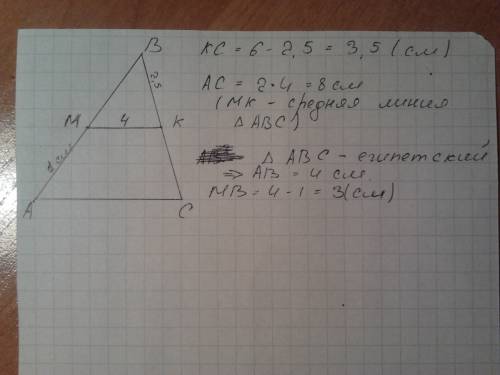 B
2,5
M 4 K
1 см
A C
KC = 6 - 2,5 = 3,5 (см)
AC = 2 · 4 = 8 см
(MK - средняя линия
△ ABC)
△ ABC - египетский
⇒ AB = 4 см.
MB = 4 - 1 = 3(см)